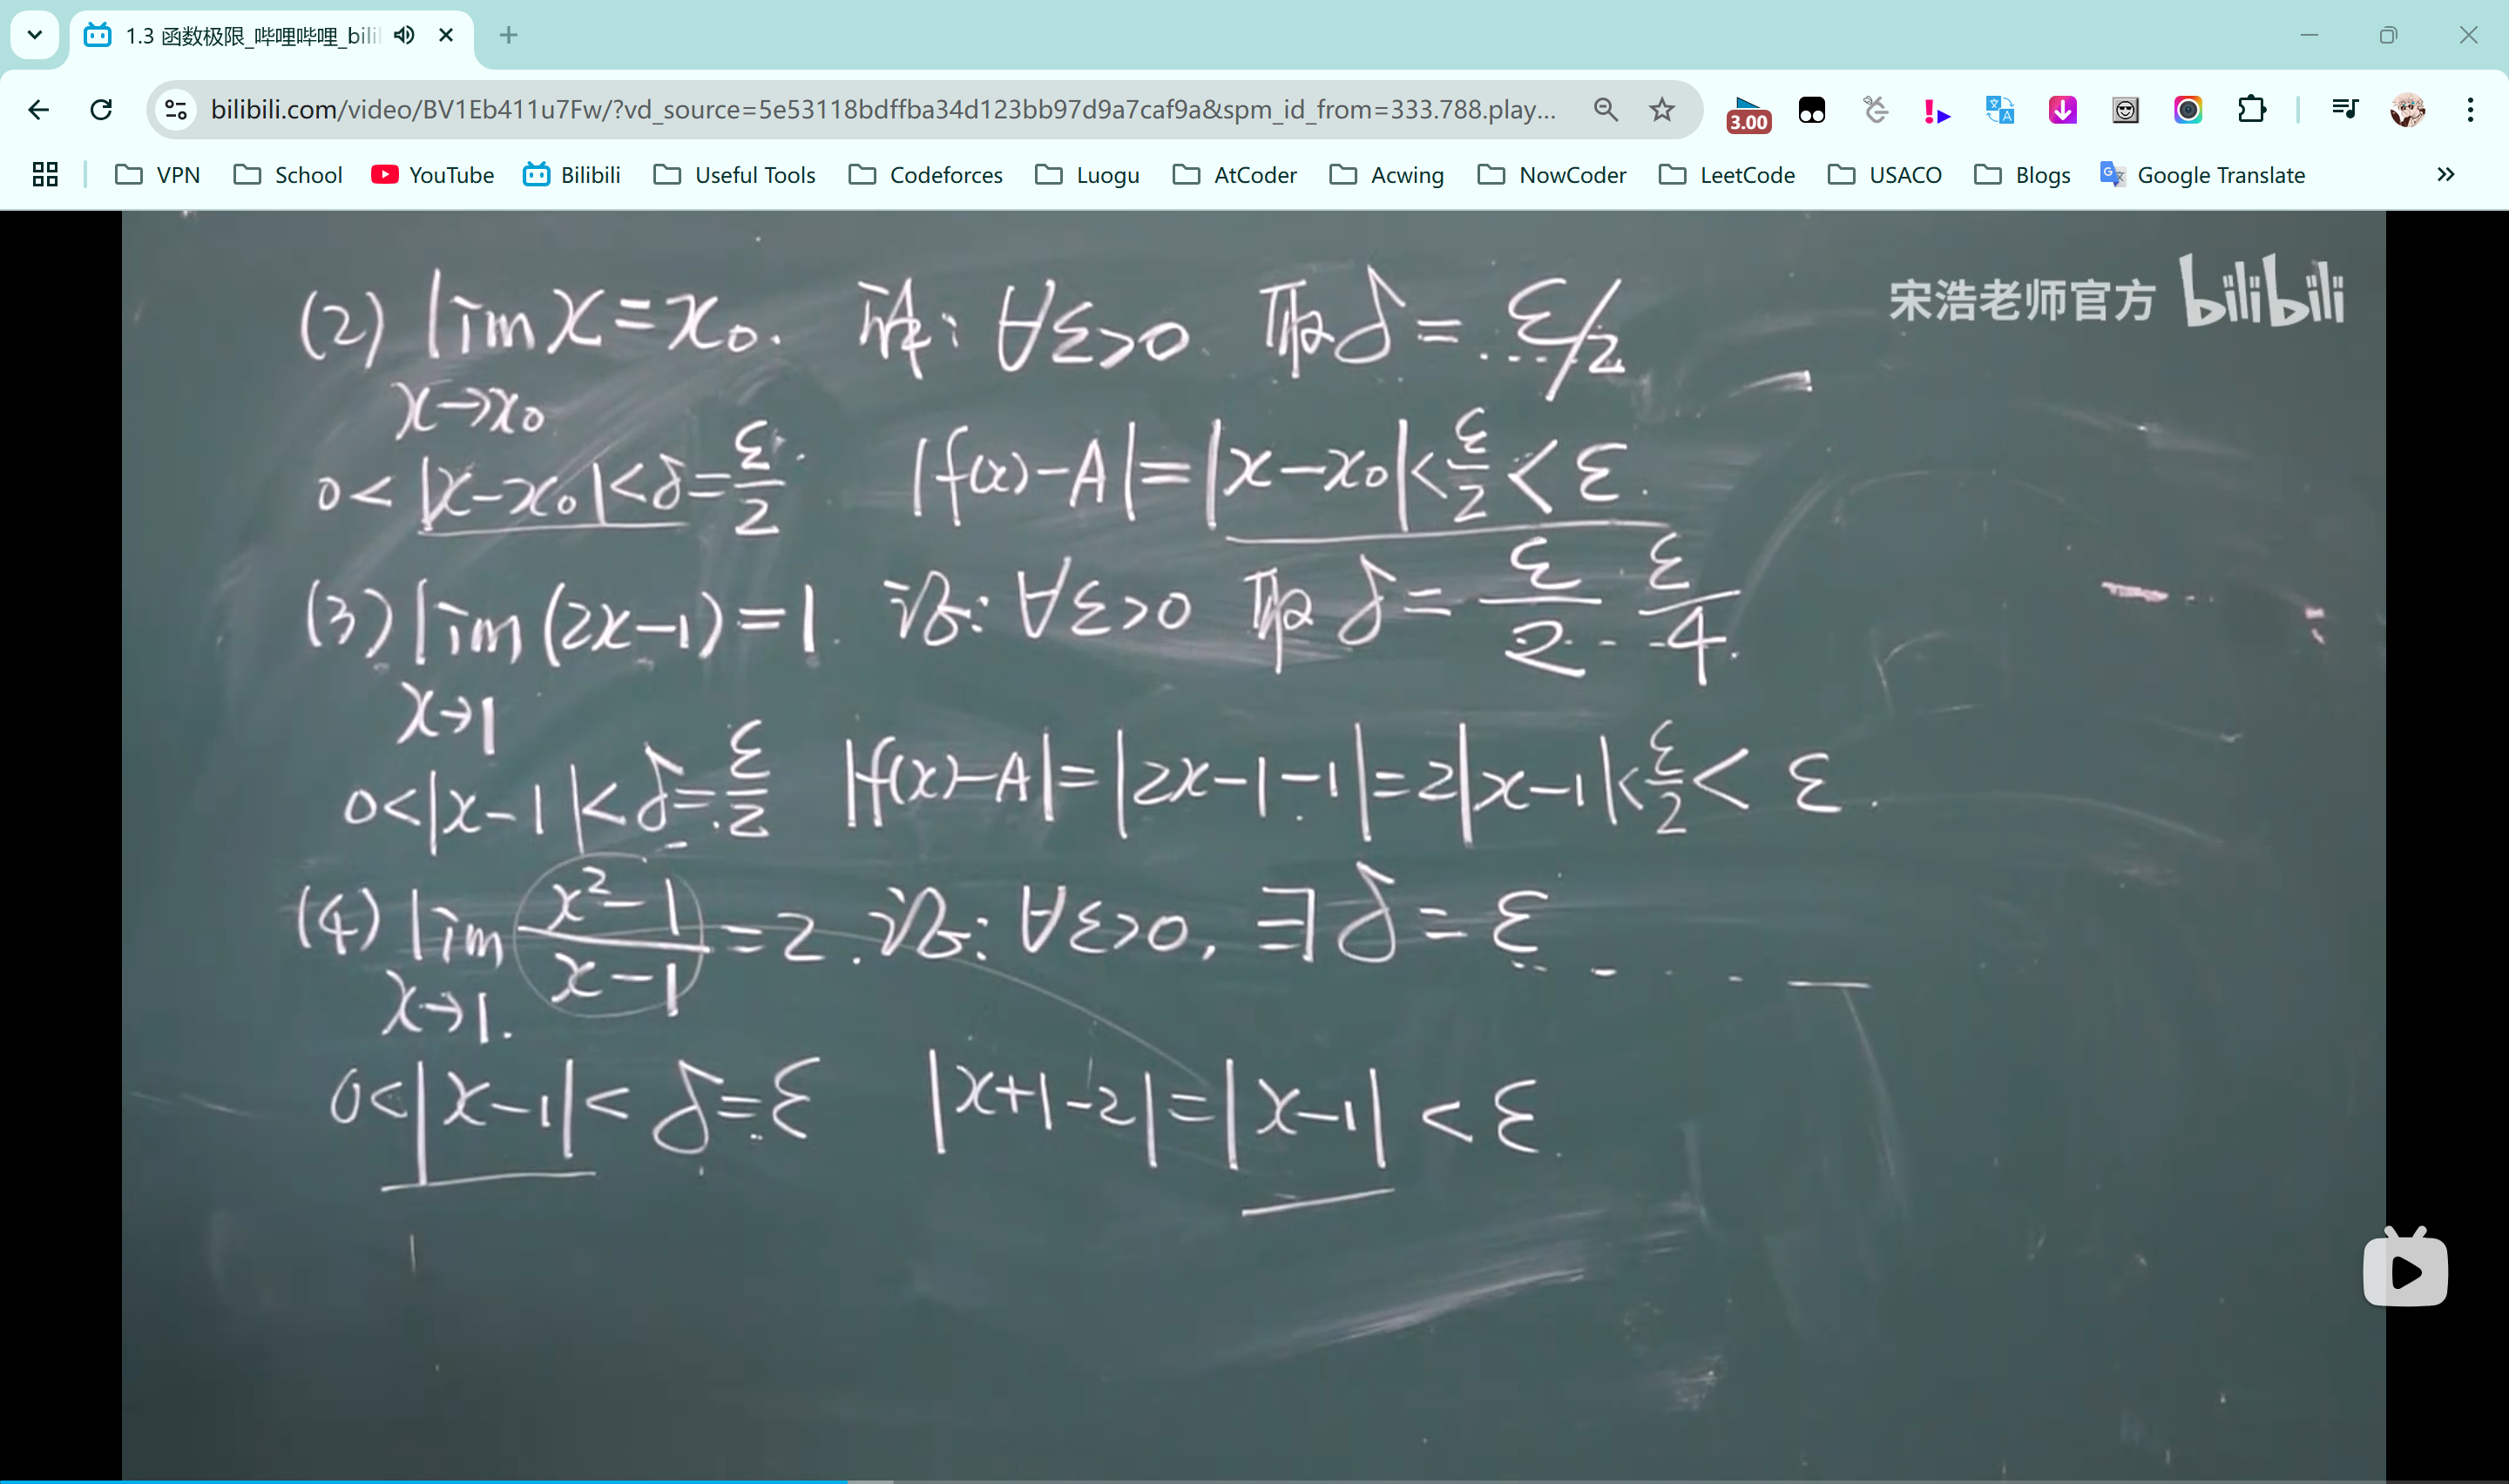 1.3 函数极限_哔哩哔哩_bili
bilibili.com/video/BV1Eb411u7Fw/?vd_source=5e53118bdffba34d123bb97d9a7caf9a&spm_id_from=333.788.play...
3.00
VPN School YouTube Bilibili Useful Tools Codeforces Luogu AtCoder Acwing NowCoder LeetCode USACO Blogs Google Translate
宋浩老师官方 bilibili
(2) lim x = x₀. 证: ∀ε>0 取δ = ε/2
x→x₀
0 < |x-x₀| < δ = ε/2 |f(x)-A| = |x-x₀| < ε/2 < ε.
(3) lim (2x-1) = 1. 证: ∀ε>0 取δ = ε/2 ε/4
x→1
0 < |x-1| < δ = ε/2 |f(x)-A| = |2x-1-1| = 2|x-1| < ε/2 < ε.
(4) lim (x²-1)/(x-1) = 2. 证: ∀ε>0, ∃δ = ε
x→1.
0 < |x-1| < δ = ε |x+1-2| = |x-1| < ε